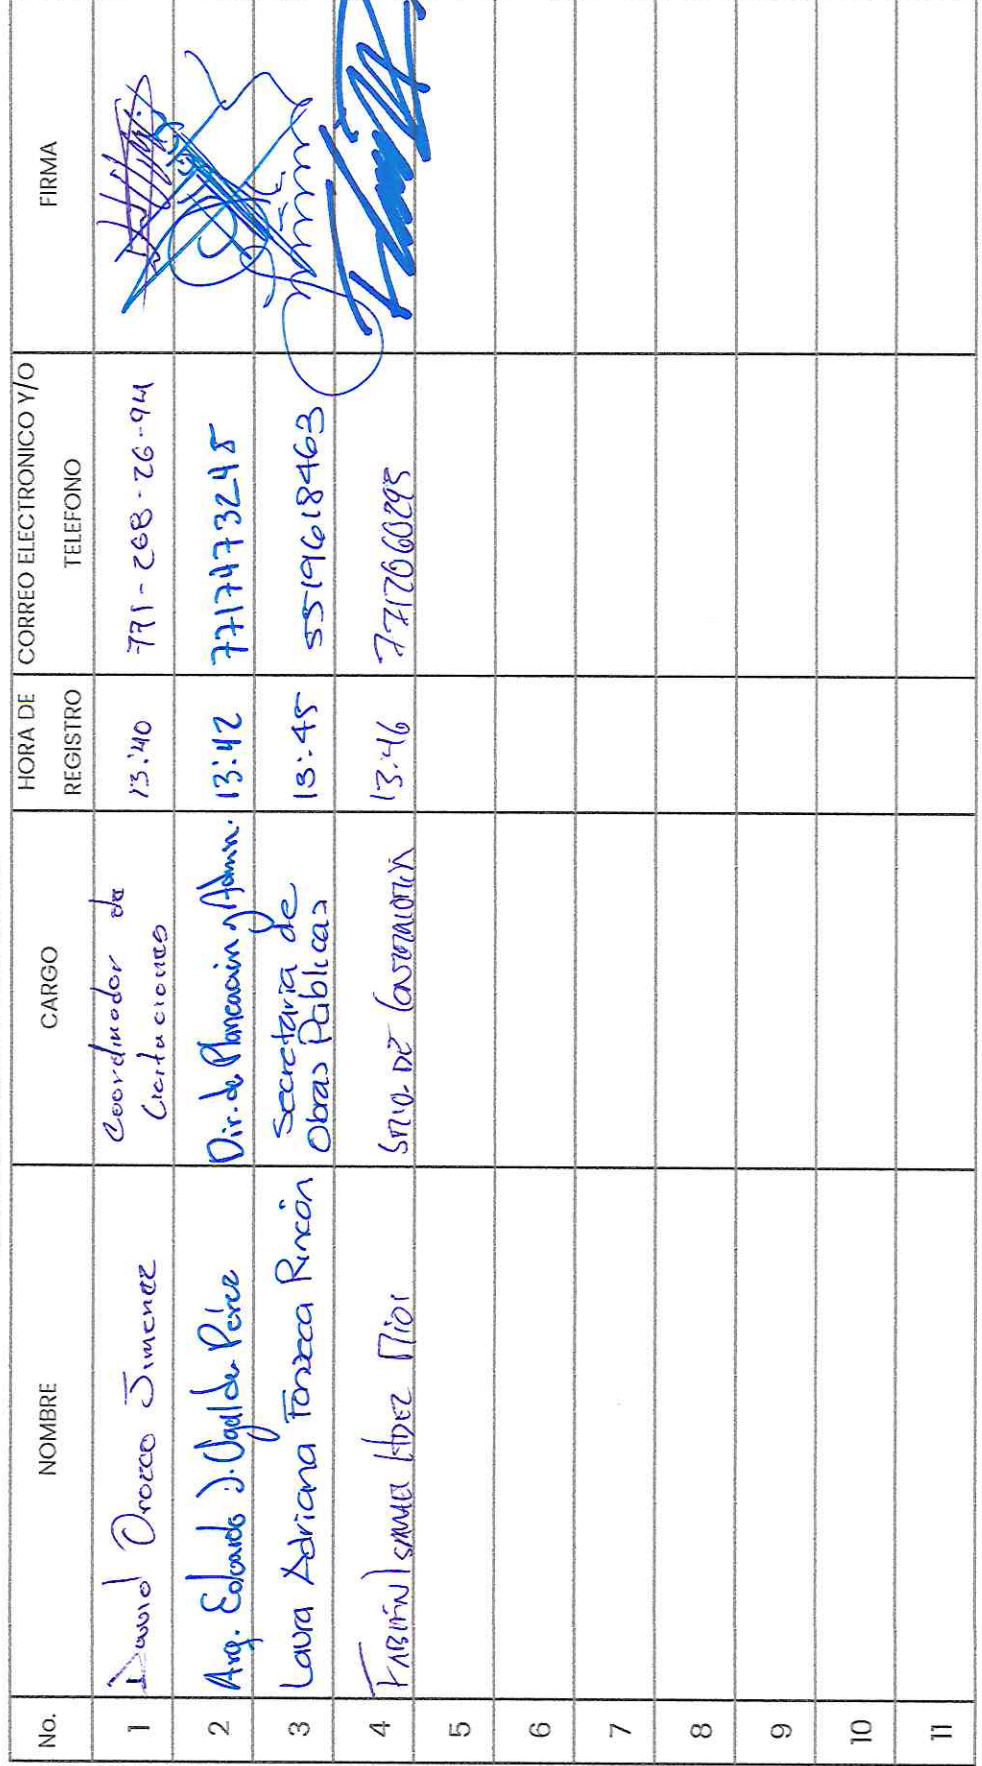 No. NOMBRE CARGO HORA DE REGISTRO CORREO ELECTRONICO Y/O TELEFONO FIRMA
1 David Orozco Jimenez Coordinador de Licitaciones 13:40 771-268-26-94
2 Arq. Eduardo J. Ugalde Pérez Dir. de Planeación y Admin. 13:42 7717473245
3 Laura Adriana Fonseca Rincón Secretaria de Obras Públicas 13:45 5519618463
4 FABIÁN ISMAEL HDEZ DE 13:46 7712660295
5
6
7
8
9
10
11